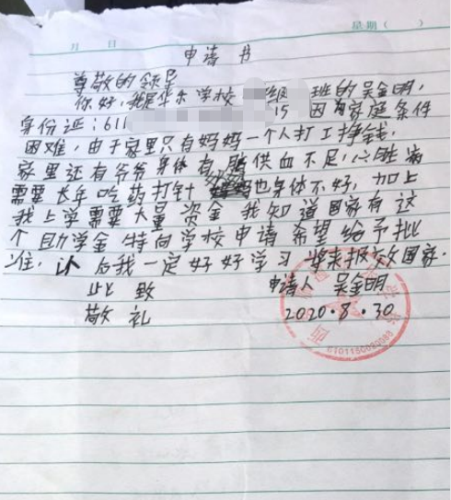 星期（ ）
月 日
申请书
尊敬的领导
你好，我是华禾学校 组 班的吴金明，
身份证：611 15 因为家庭条件
困难，由于家里只有妈妈一个人打工挣钱，
家里还有爷爷身体有 供血不足，心脏病
需要长年吃药打针 也身体不好，加上
我上学需要大量资金 我知道国家有这
个助学金 特向学校申请希望给予批
准，以后我一定好好学习 将来报效国家
此致 申请人 吴金明
敬礼 2020.8.30